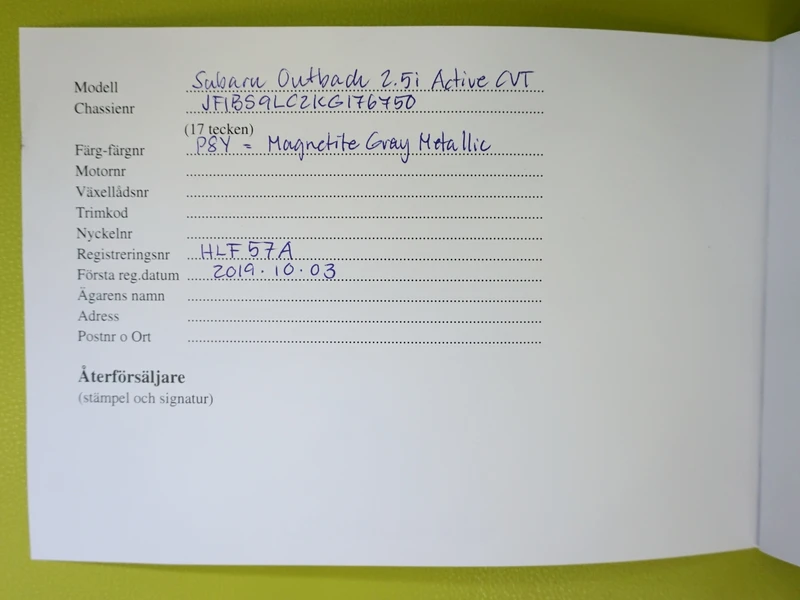 Modell Subaru Outback 2.5i Active CVT
Chassienr JF1BS9LC2KG176750
(17 tecken)
Färg-färgnr P8Y = Magnetite Gray Metallic
Motornr
Växellådsnr
Trimkod
Nyckelnr
Registreringsnr HLF 57A
Första reg.datum 2019.10.03
Ägarens namn
Adress
Postnr o Ort
Återförsäljare
(stämpel och signatur)